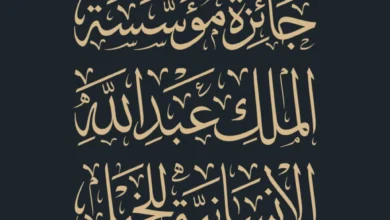 جَائِزَةُ مُؤَسَّسَةِ
المَلِكِ عَبْدِاللَّهِ
الإِنْسَانِيَّةِ